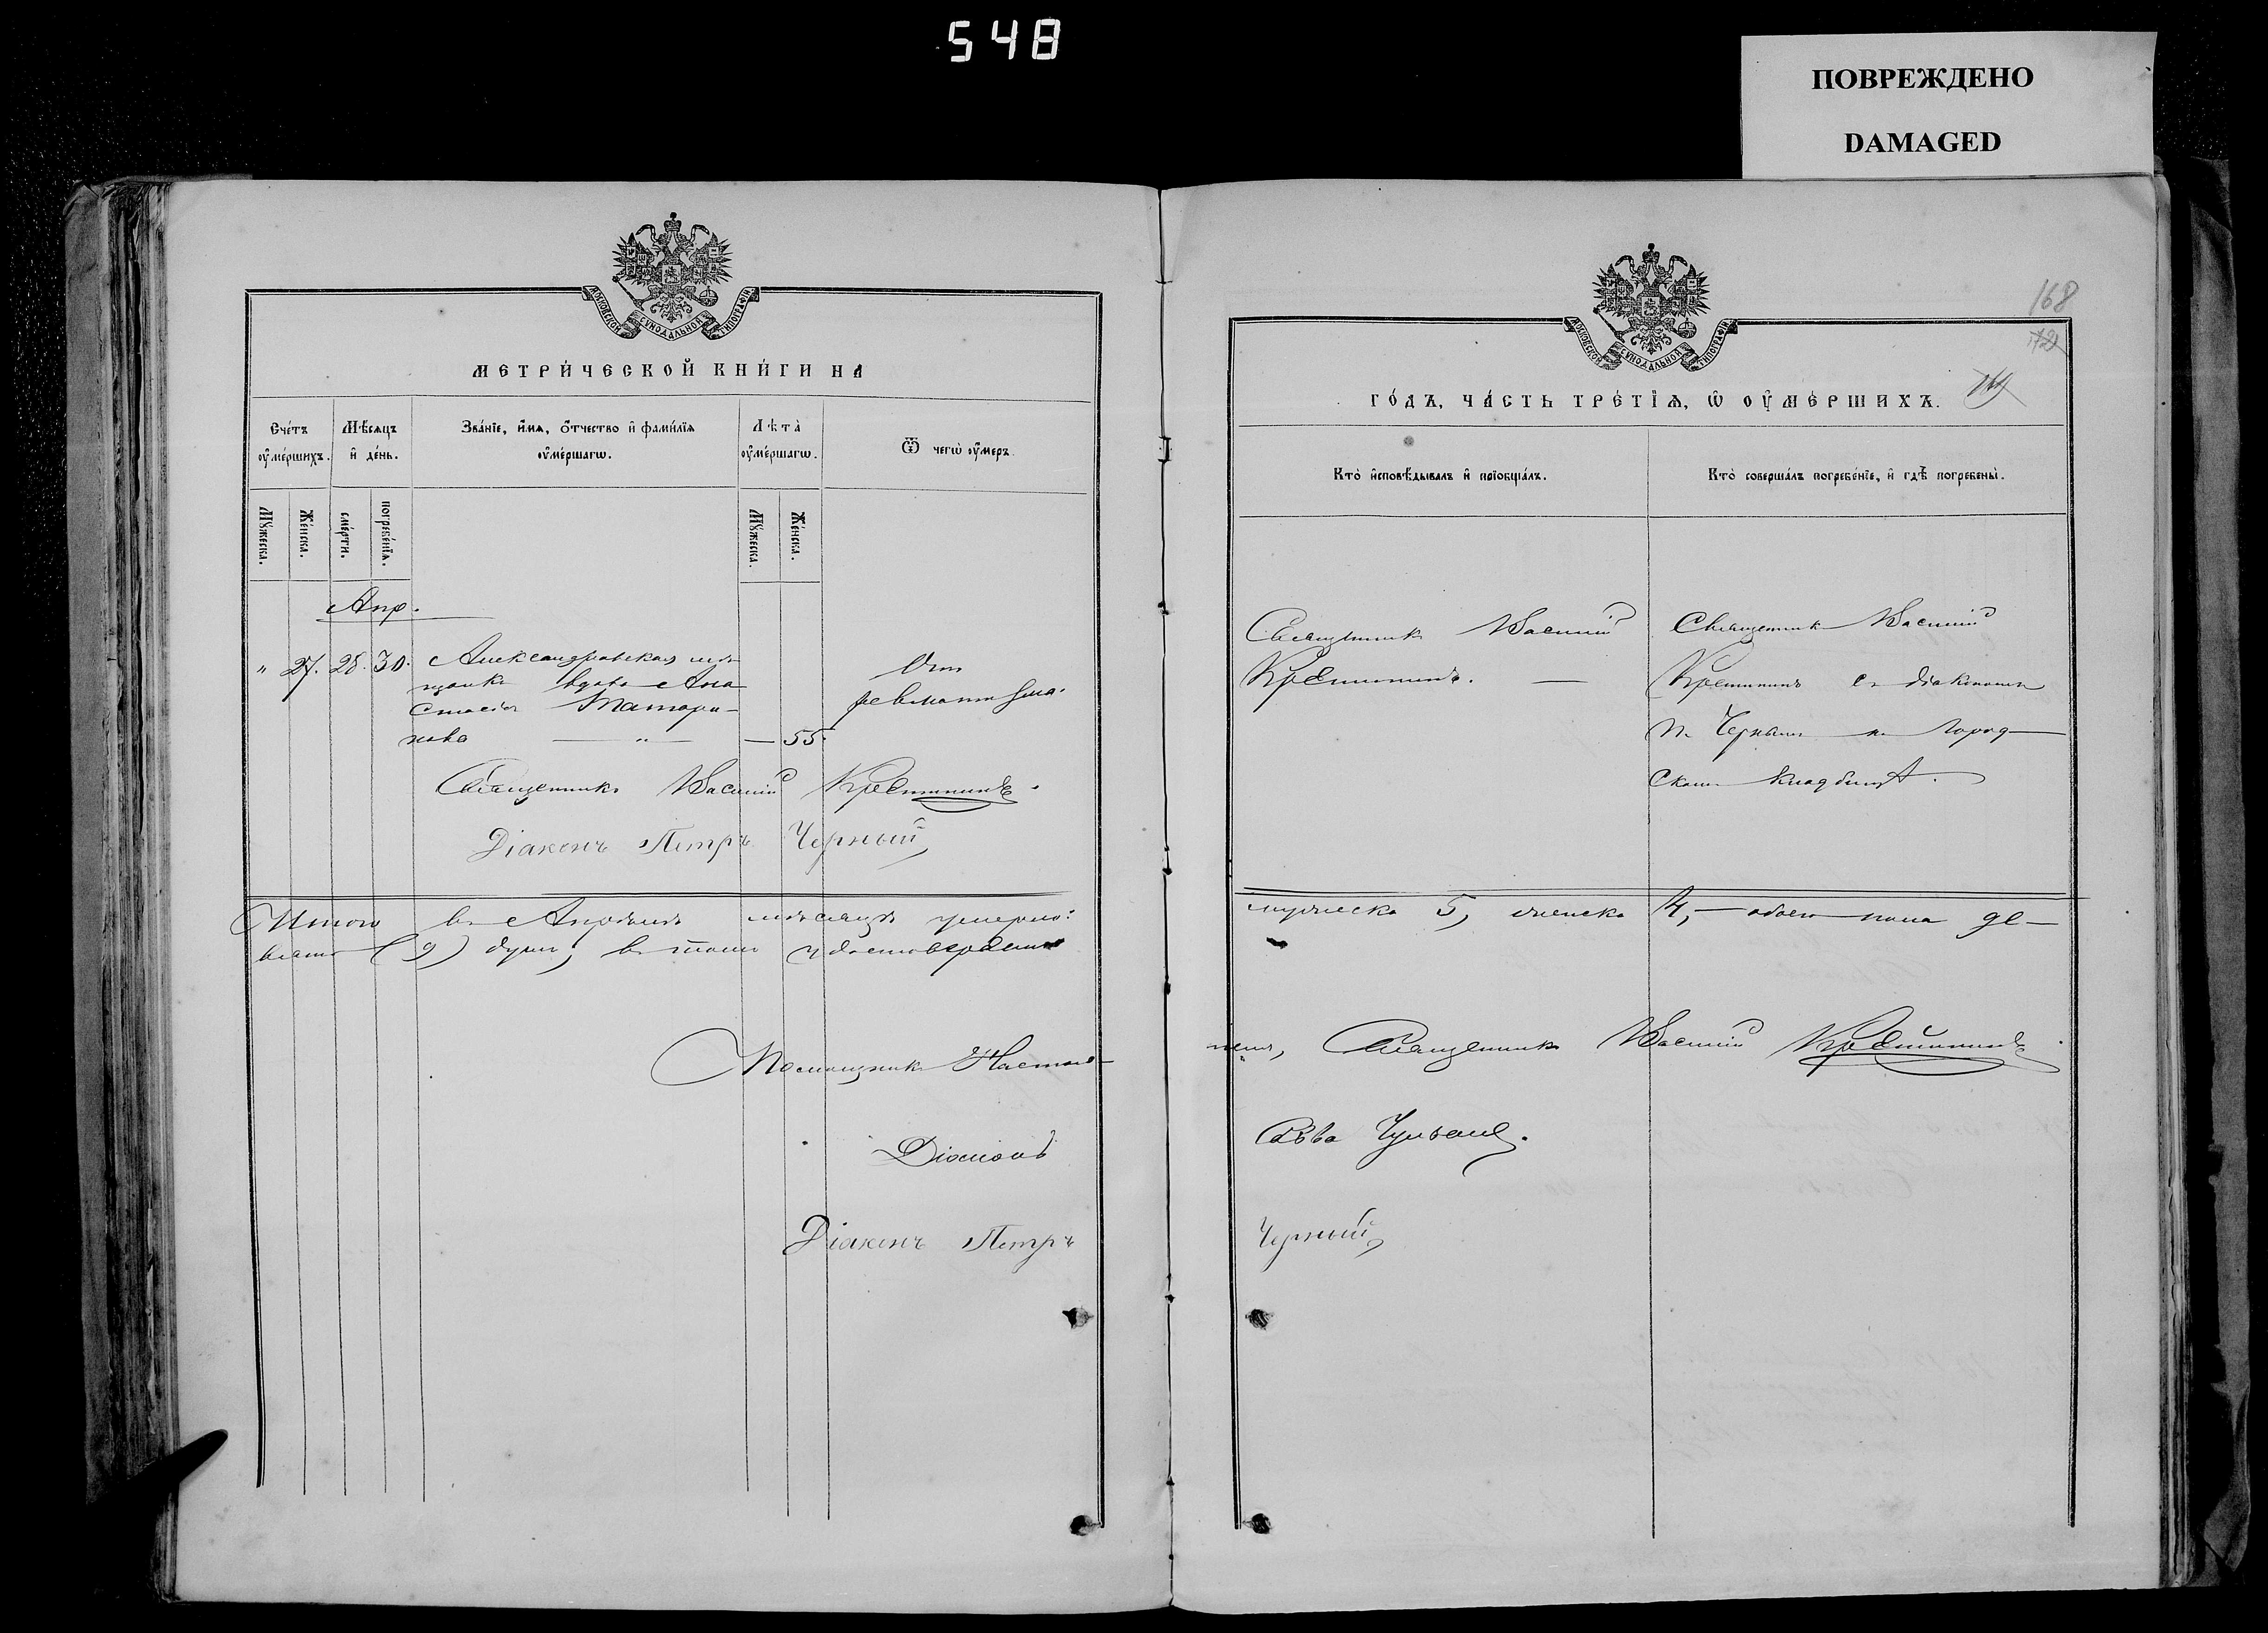 548
ПОВРЕЖДЕНО
DAMAGED
МОСКОВСКОЙ СѴНОДАЛЬНОЙ ТИПОГРАФІИ
МЕТРИ́ЧЕСКОЙ КНИ́ГИ НА
Сче́тъ ᲂу҆ме́ршихъ.
Мѣ́сяцъ и҆ де́нь.
Зва́нїе, и҆́мя, ѻ҆́тчество и҆ фами́лїя ᲂу҆ме́ршагѡ.
Лѣ́та ᲂу҆ме́ршагѡ.
Ѿ чегѡ̀ ᲂу҆́меръ.
Мꙋ́жеска.
Же́нска.
сме́рти.
погребе́нїѧ.
Мꙋ́жеска.
Же́нска.
Апр.
" 27. 28. 30. Александровская мѣ-
щанка вдова Ана
стасія Татари-
нова — " — — 55.
Отъ
ревматизма.
Священникъ Василій Крестининъ.
Діаконъ Петръ Черный
Итого въ Апрѣлѣ мѣсяцѣ умерло:
вять (9) душъ, въ томъ удостовѣряемъ
Помощникъ Настоя-
Діаконъ Петръ
168
ГО́ДЪ, ЧА́СТЬ ТРЕ́ТЇѦ, Ѡ҆ ОУ҆МЕ́РШИХЪ.
Кто̀ и҆сповѣ́дывалъ и҆ прїобща́лъ.
Кто̀ соверша́лъ погребе́нїе, и҆ гдѣ̀ погребены̀.
Священникъ Василій
Крестининъ. —
Священникъ Василій
Крестининъ съ діакономъ
П. Чернымъ на город-
скомъ кладбищѣ.
мужеска 5, женска 4, — обоего пола де-
теля, Священникъ Василій Крестининъ
Черный